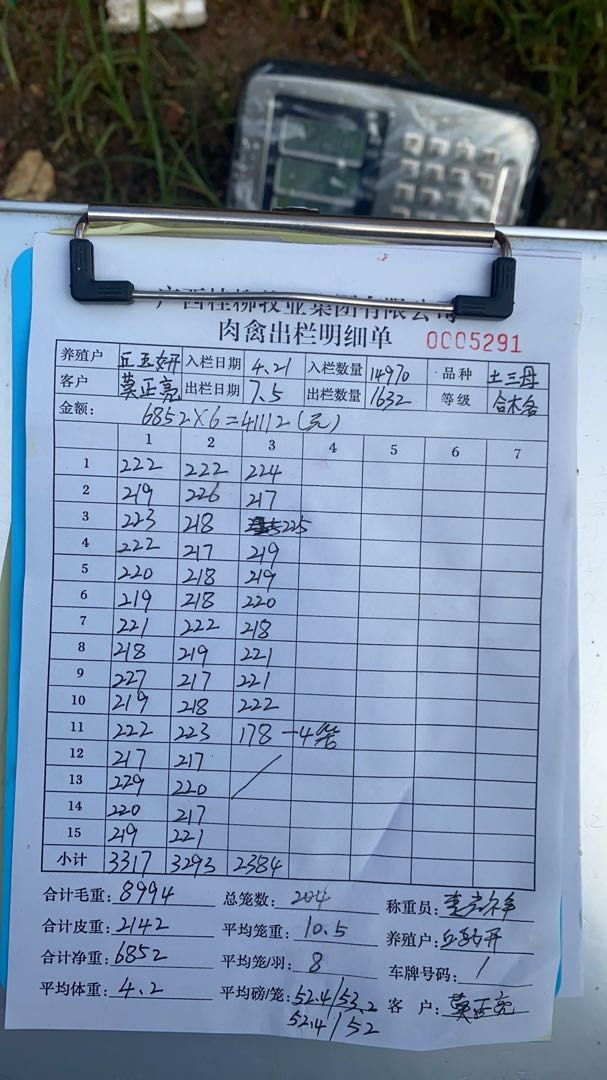 广西桂柳牧业集团有限公司
肉禽出栏明细单 0005291
养殖户 入栏日期 4.21 入栏数量 14970 品种 土三母
客户 莫正亮 出栏日期 7.5 出栏数量 1632 等级 合格
金额: 6852×6=41112(元)
1 2 3 4 5 6 7
1 222 222 224
2 219 226 217
3 223 218 225
4 222 217 219
5 220 218 219
6 219 218 220
7 221 222 218
8 218 219 221
9 227 217 221
10 219 218 222
11 222 223 178 -4笼
12 217 217
13 229 220
14 220 217
15 219 221
小计 3317 3293 2384
合计毛重: 8994 总笼数: 204 称重员:
合计皮重: 2142 平均笼重: 10.5 养殖户:
合计净重: 6852 平均笼/羽: 8 车牌号码: /
平均体重: 4.2 平均磅/笼: 52.4/53.2 客户: 莫正亮
52.4/52